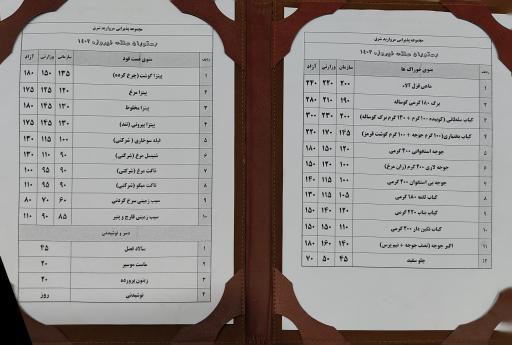 مجموعه پذیرایی مروارید شری
رستوران حلقه فیروزه ۱۴۰۳
ردیف منوی خوراک ها سازمانی وزارتی آزاد
۱ ماهی قزل آلا ۲۰۰ ۲۲۰ ۲۴۰
۲ برگ ۱۸۰ گرمی گوساله ۱۹۰ ۲۱۰ ۲۸۰
۳ کباب سلطانی (کوبیده ۱۰۰ گرم + ۱۳۰ گرم برگ گوساله) ۲۰۰ ۲۳۰ ۳۰۰
۴ کباب بختیاری (۱۰۰ گرم جوجه + ۱۰۰ گرم گوشت قرمز) ۱۴۵ ۱۷۰ ۲۲۰
۵ جوجه استخوانی ۴۰۰ گرمی ۱۲۰ ۱۵۰ ۱۸۰
۶ جوجه لاری ۴۰۰ گرم (ران مرغ) ۱۰۰ ۱۲۰ ۱۵۰
۷ جوجه بی استخوان ۲۰۰ گرمی ۱۰۰ ۱۱۵ ۱۴۰
۸ کباب لقمه ۱۸۰ گرمی ۱۰۵ ۱۱۵ ۱۳۰
۹ کباب بناب ۲۲۰ گرمی ۱۲۰ ۱۴۰ ۱۵۰
۱۰ کباب نگین دار ۲۰۰ گرمی ۱۱۰ ۱۵۰ ۱۵۰
۱۱ اکبر جوجه (نصف جوجه + نیم پرس) ۱۴۰ ۱۶۰ ۱۸۰
۱۲ چلو سفید ۴۵ ۵۰ ۷۰
مجموعه پذیرایی مروارید شری
رستوران حلقه فیروزه ۱۴۰۳
ردیف منوی فست فود سازمانی وزارتی آزاد
۱ پیتزا گوشت (چرخ کرده) ۱۳۵ ۱۵۰ ۱۸۰
۲ پیتزا مرغ ۱۲۰ ۱۴۵ ۱۷۵
۳ پیتزا مخلوط ۱۳۰ ۱۴۵ ۱۸۰
۴ پیتزا پپرونی (تند) ۱۳۰ ۱۴۵ ۱۷۵
۵ فیله سوخاری (شرکتی) ۱۰۰ ۱۱۵ ۱۳۰
۶ شنیسل مرغ (شرکتی) ۹۰ ۱۱۰ ۱۳۰
۷ ناگت مرغ (شرکتی) ۹۰ ۹۵ ۱۰۰
۸ ناگت میگو (شرکتی) ۹۰ ۹۵ ۱۱۰
۹ سیب زمینی سرخ کردنی ۶۰ ۷۰ ۸۰
۱۰ سیب زمینی قارچ و پنیر ۸۵ ۹۰ ۱۱۰
دسر و نوشیدنی
۱ سالاد فصل ۳۵
۲ ماست موسیر ۲۰
۳ زیتون پرورده ۴۰
۴ نوشیدنی روز